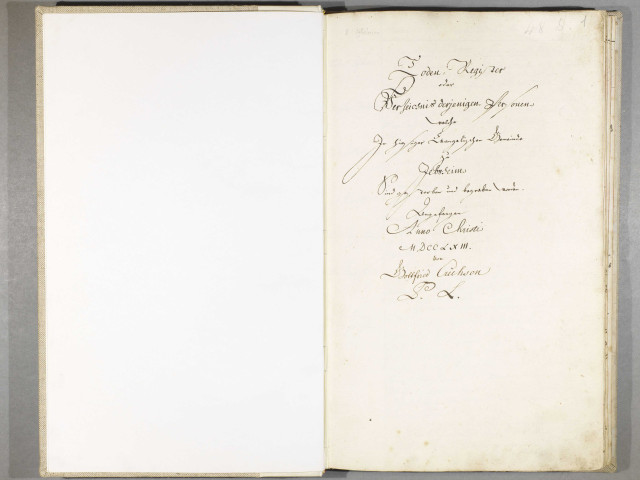 Toden Register
oder
Verzeichnis derjenigen Persohnen
welche
In hiesiger Evangelischer Gemeinde
zu
Jebsheim
Sind gestorben und begraben worden.
Angefangen
Anno Christi
MDCCLXIII.
von
Gottfried
P. L.